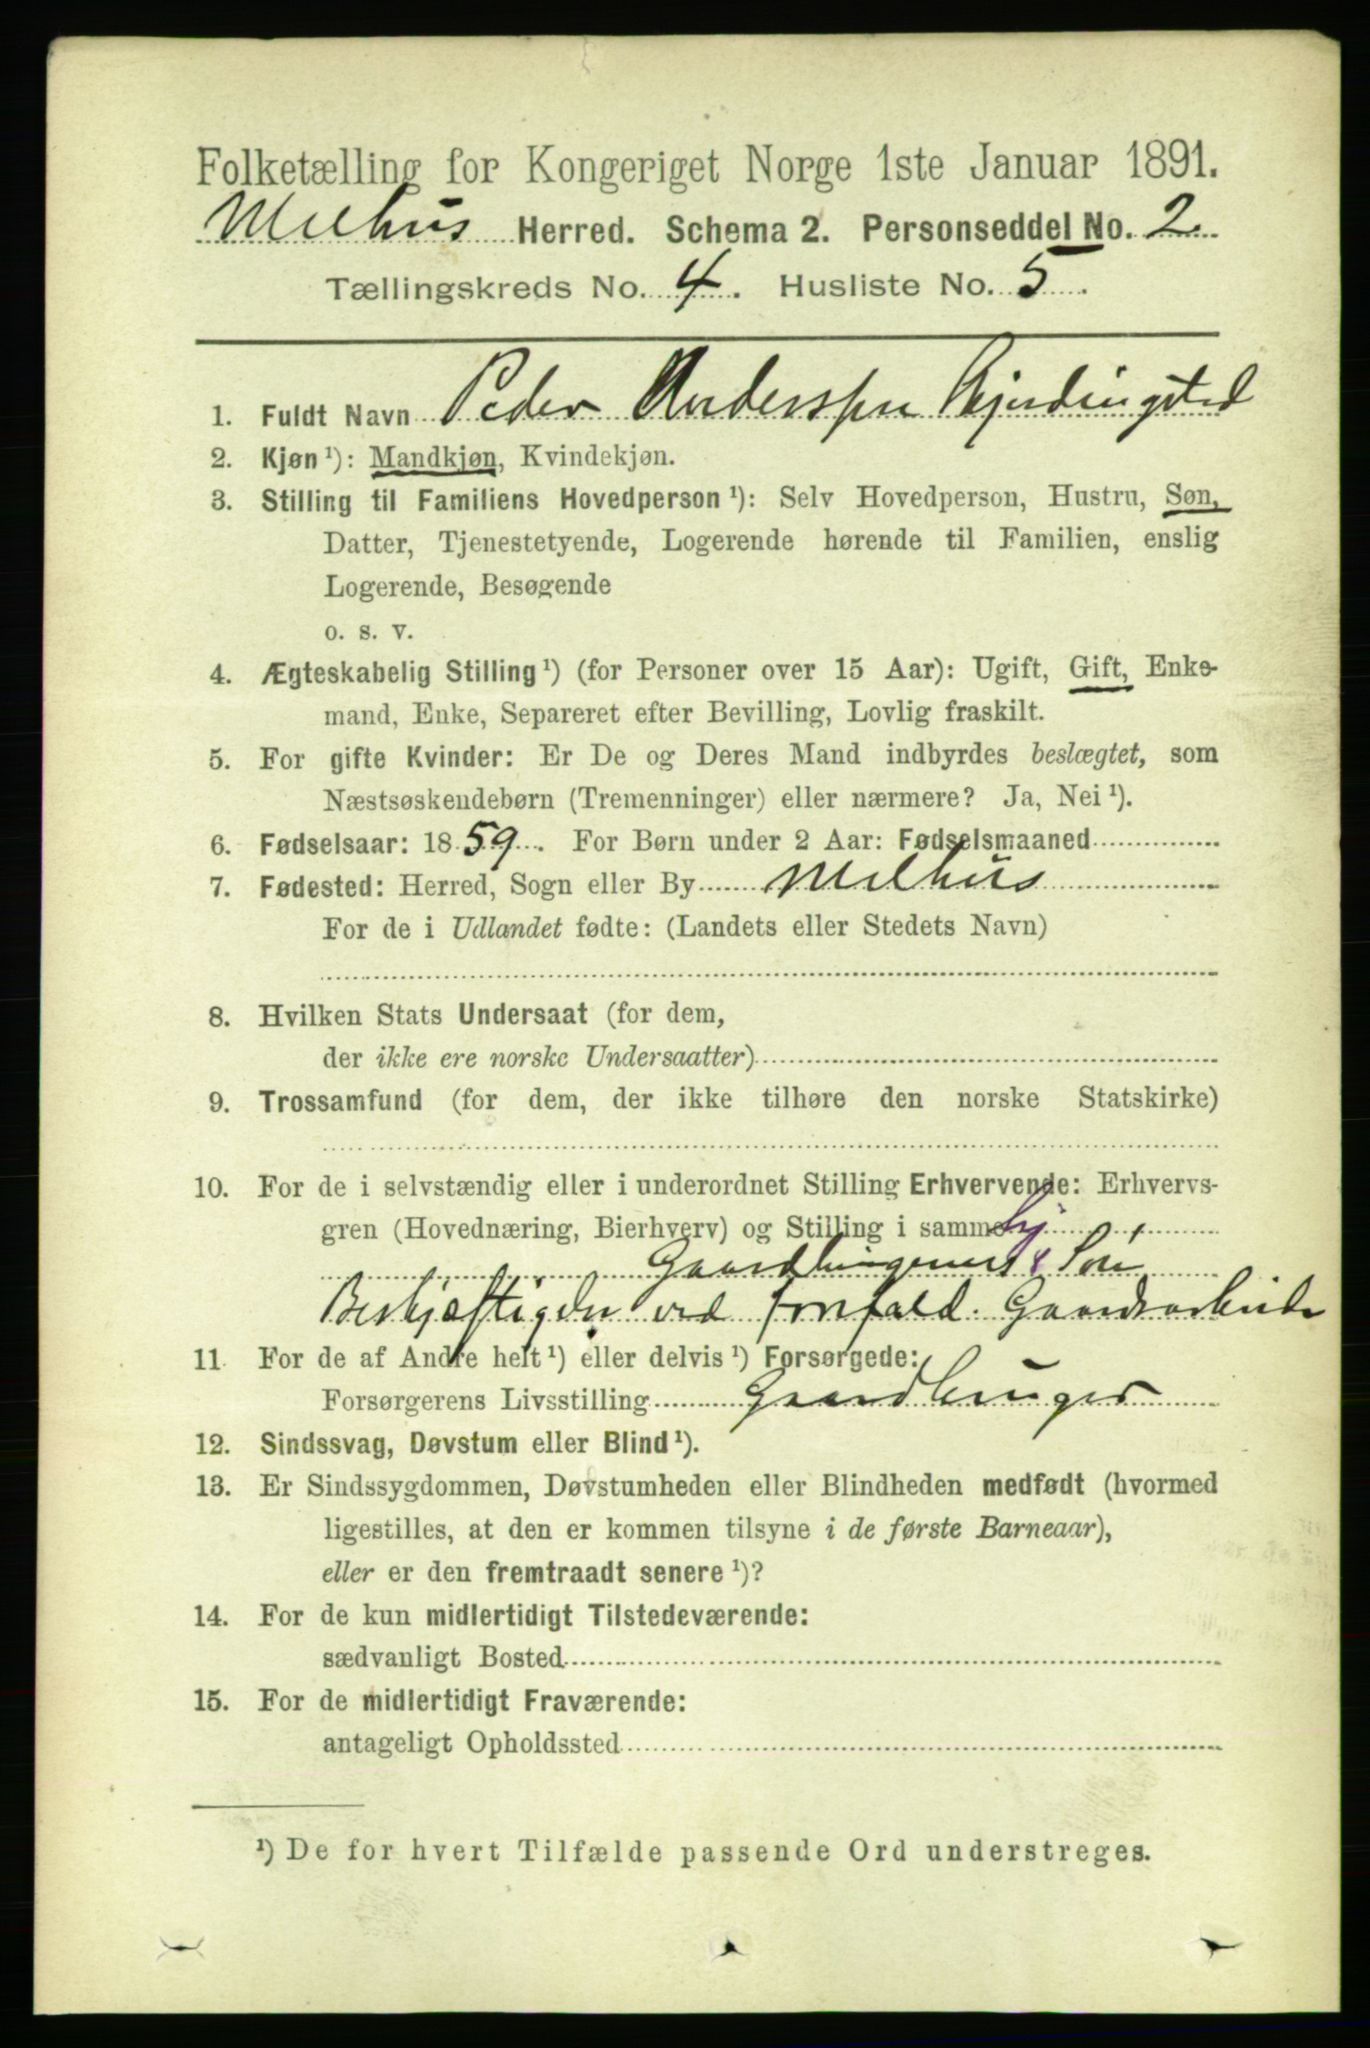 Folketælling for Kongeriget Norge 1ste Januar 1891.
Melhus Herred. Schema 2. Personseddel No. 2
Tællingskreds No. 4. Husliste No. 5.
1. Fuldt Navn Peder Anderssen Gjerdingstad
2. Kjøn ¹): Mandkjøn, Kvindekjøn.
3. Stilling til Familiens Hovedperson ¹): Selv Hovedperson, Hustru, Søn,
Datter, Tjenestetyende, Logerende hørende til Familien, enslig
Logerende, Besøgende
o. s. v.
4. Ægteskabelig Stilling ¹) (for Personer over 15 Aar): Ugift, Gift, Enke-
mand, Enke, Separeret efter Bevilling, Lovlig fraskilt.
5. For gifte Kvinder: Er De og Deres Mand indbyrdes beslægtet, som
Næstsøskendebørn (Tremenninger) eller nærmere? Ja, Nei ¹).
6. Fødselsaar: 1859. For Børn under 2 Aar: Fødselsmaaned
7. Fødested: Herred, Sogn eller By Melhus
For de i Udlandet fødte: (Landets eller Stedets Navn)
8. Hvilken Stats Undersaat (for dem,
der ikke ere norske Undersaatter)
9. Trossamfund (for dem, der ikke tilhøre den norske Statskirke)
10. For de i selvstændig eller i underordnet Stilling Erhvervende: Erhvervs-
gren (Hovednæring, Bierhverv) og Stilling i samme
Gaardbrugers Søn
Beskjæftiget ved forefald. Gaardsarbeide
11 For de af Andre helt ¹) eller delvis ¹) Forsørgede:
Forsørgerens Livsstilling Gaardbruger
12. Sindssvag, Døvstum eller Blind ¹).
13. Er Sindssygdommen, Døvstumheden eller Blindheden medfødt (hvormed
ligestilles, at den er kommen tilsyne i de første Barneaar),
eller er den fremtraadt senere ¹)?
14. For de kun midlertidigt Tilstedeværende:
sædvanligt Bosted
15. For de midlertidigt Fraværende:
antageligt Opholdssted
¹) De for hvert Tilfælde passende Ord understreges.